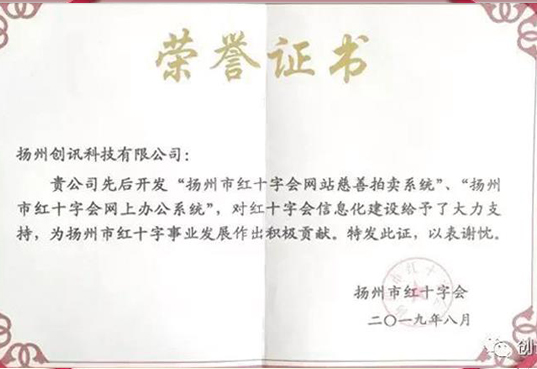 荣誉证书
扬州创讯科技有限公司：
贵公司先后开发“扬州市红十字会网站慈善拍卖系统”、“扬州
市红十字会网上办公系统”，对红十字会信息化建设给予了大力支
持，为扬州市红十字事业发展作出积极贡献。特发此证，以表谢忱。
扬州市红十字会
二〇一九年八月
创